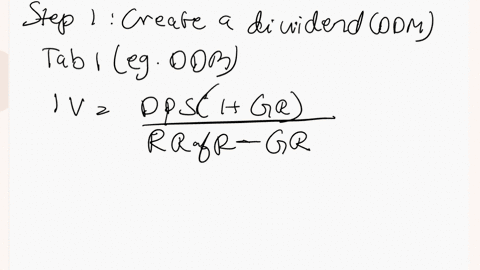 Step 1: Create a dividend (DDM)
Tab 1 (eg. DDM)
IV = DPS(1+GR)
RRofR-GR